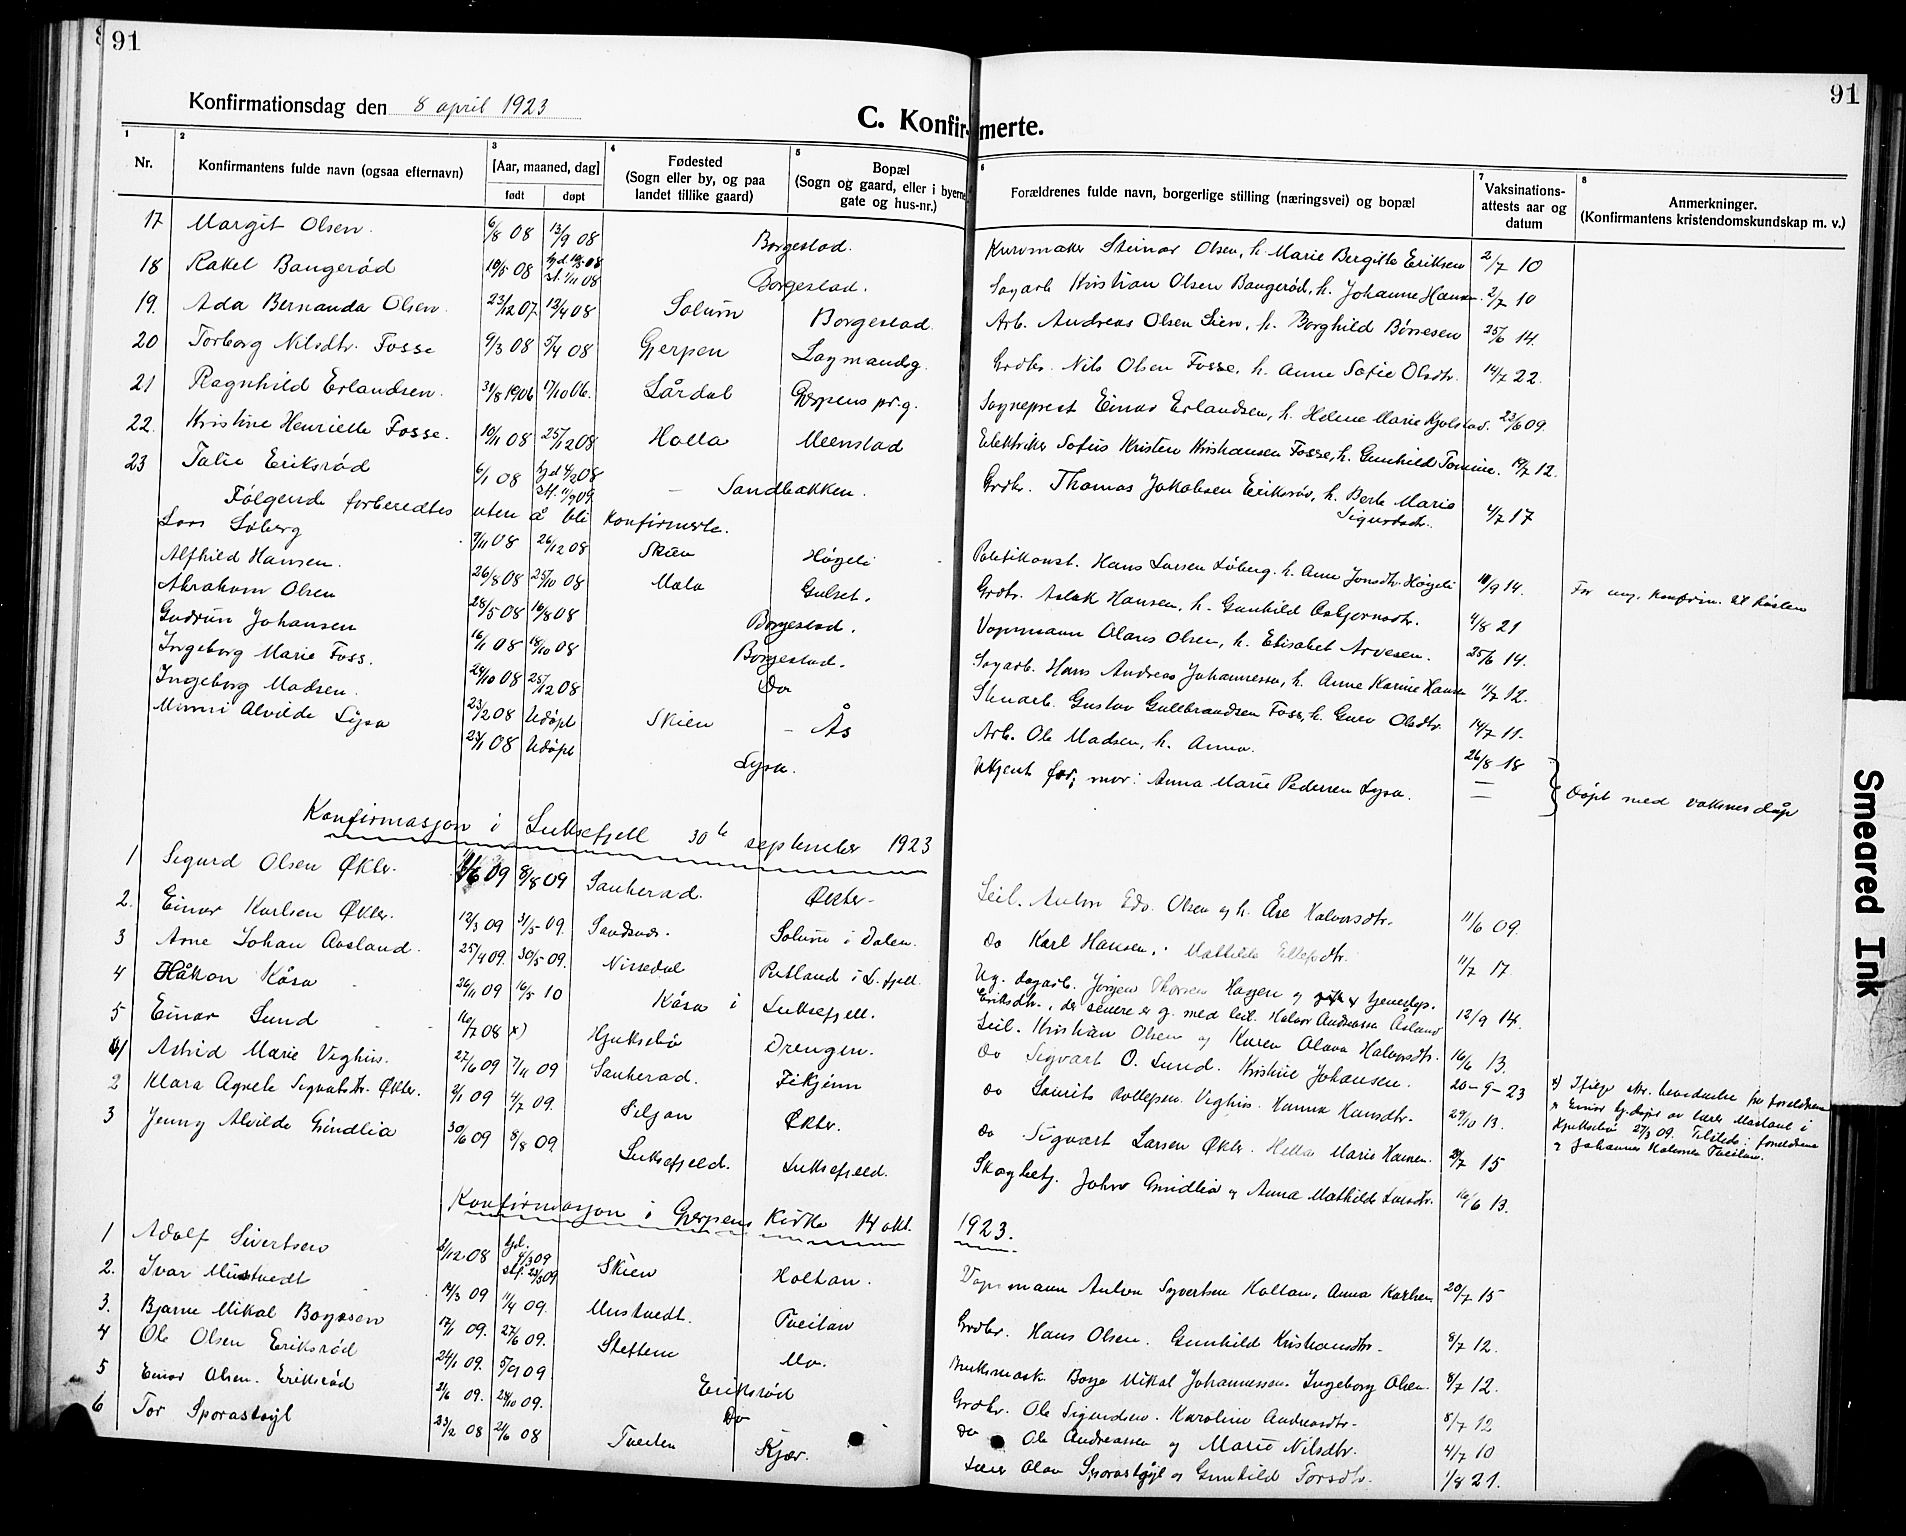 91
91
Konfirmationsdag den 8 april 1923
C. Konfirmerte.
1 2 3 4 5 6 7 8
Nr. Konfirmantens fulde navn (ogsaa efternavn) [Aar, maaned, dag] født døpt Fødested (Sogn eller by, og paa landet tillike gaard) Bopæl (Sogn og gaard, eller i byerne gate og hus-nr.) Forældrenes fulde navn, borgerlige stilling (næringsvei) og bopæl Vaksinations-attests aar og datum Anmerkninger. (Konfirmantens kristendomskundskap m. v.)
17 Margit Olsen. 6/8 08 13/9 08 Borgestad. Kurvmaker Steinar Olsen, h. Marie Bergitte Eriksen 2/7 10
18 Rakel Baugerød 10/5 08 Borgestad. Sagarb Kristian Olsen Baugerød, h. Johanne Hansen. 2/7 10
19. Ada Bernanda Olsen. 23/12 07 12/4 08 Solum Borgestad. Arb. Andreas Olsen Lien, h. Borghild Børresen 25/6 14.
20 Torborg Nilsdtr. Fosse 9/3 08 5/4 08 Gjerpen Lagmandsg. Grdbr. Nils Olsen Fosse, h. Anne Sofie Olsdtr. 14/7 22.
21 Ragnhild Erlandsen. 31/8 1906 7/10 06. Lårdal Gjerpens pr.g. Sogneprest Einar Erlandsen, h. Helene Marie Kjølstad. 23/6 09.
22. Kristine Henriette Fosse. 10/11 08 25/12 08 Holla Meenstad Elektriker Sofus Kristen Kristiansen Fosse, h. Gunhild Tomine. 19/7 12.
23 Talie Eriksrød 6/1 08 hj.d 4/2 08 - Sandbakken. Grdbr. Thomas Jakobsen Eriksrød, h. Berte Marie Sigurdsdtr. 4/7 17
Følgende forberedtes uten å bli konfirmerte.
Lars Løberg 7/11 08 26/12 08 Skien Høgeli Politikonst. Hans Larsen Løberg. h. Anne Jonsdtr. Høgeli 18/9 14. For ung, konfirm. til høsten
Alfhild Hansen. 26/8 08 25/10 08 Mæla Gulset. Grdbr. Aslak Hansen, h. Gunhild Asbjørnsdtr. 4/8 21
Abraham Olsen 28/5 08 16/8 08 Borgestad. Vognmann Olaus Olsen, h. Elisabet Arvesen. 25/6 14.
Gudrun Johansen 16/1 08 18/10 08 Borgestad. Sagarb. Hans Andreas Johannessen, h. Anne Karine Hansen 11/7 12.
Ingeborg Marie Foss. 24/10 08 25/12 08 Do Stenarb. Gustav Gulbrandsen Foss, h. Guro Olsdtr. 14/7 11.
Ingeborg Madsen. 23/2 08 Udøpt Skien - Ås Arb. Ole Madsen, h. Anna. 26/8 18
Minni Alvilde Lysa 23/1 08 Udøpt Lysa. Ukjent far; mor: Anna Marie Pedersen Lysa. — Døpt med voksnes dåp
Konfirmasjon i Luksefjell 30te september 1923
1 Sigurd Olsen Økter. 1/6 09 8/8 09 Sauherad. Økter- Seil. Anton Edv. Olsen og h. Åse Halvorsdtr. 11/6 09.
2. Einar Karlsen Økter. 12/3 09 31/5 09. Sandsvær. Solum i Dalen. do Karl Hansen, : Mathilde Ellefsdtr. 11/7 17
3 Arne Johan Aasland. 25/4 09. 30/5 09. Nissedal Rutland i L.fjell. Ug. dagarb. Jørgen Thorsen Hagen og tjenestep. Eriksdtr., der senere er g. med Seil. Halvor Andreassen Åsland 12/9 14.
4 Håkon Kåsa 26/11 09 16/5 10 Kåsa i Luksefjell. Seil. Kristian Olsen og Karen Olava Halvorsdtr. 16/6 13.
5 Einar Lund 16/7 08 x) Hjuksebø Drengen. do Sigvart O. Lund. Kristine Johansen. 20-9-23
1 Astrid Marie Veghus. 27/6 09 7/11 09 Sauherad. Fikjern do Laurits Rollefsen Veghus. Hanna Hansdtr. 29/10 13.
2 Klara Agnete Sigvatsdtr. Økter. 2/1 09 4/7 09. Siljan Økter. do Sigvart Larsen Økter. Helene Marie Hansen. 29/7 15
3 Jenny Alvilde Grindlia 30/6 09 8/8 09 Luksefjeld. Luksefjeld. Skogbetj. Johan Grindlia og Anna Mathilde Larsdtr. 16/6 13.
x) Ifølge skr. bevidnelse fra foreldrene
er Einar hj.døpt av lærer Mæland i
Hjuksebø 27/3 09. Tilstede: foreldrene
og Johannes Halvorsen Tveitan.
Konfirmasjon i Gjerpens kirke 14 okt. 1923.
1 Adolf Sivertsen 3/12 08 hjd. 4/3 09 stf. 28/3 09 Skien Holtan. Vognmann Anton Syvertsen Holtan, Anna Karlsen 20/7 15
2. Ivar Mustvedt 14/3 09 11/4 09. Mustvedt. Tveitan Grdbr. Hans Olsen. Gunhild Kristiansdtr. 8/7 12.
3. Bjarne Mikal Børgesen 17/1 09. 27/6 09. Stettene Mo. Bruksmask. Borge Mikal Johannessen. Ingeborg Olsen. 8/7 12.
4 Ole Olsen Eriksrød 24/1 09. 5/9 09 Eriksrød Grdbr. Ole Sigurdsen. Karoline Andreasdtr. 8/7 12
5 Einar Olsen. Eriksrød 2/6 09. 24/10 09. Do do Ole Andreassen og Marie Nilsdtr. 4/7 10
6 Tor Sporastøyl 23/2 08 21/6 08 Tveiten Kjær. Lærer Olav Sporastøyl og Gunhild Torsdtr. 1/8 21.
Smeared Ink